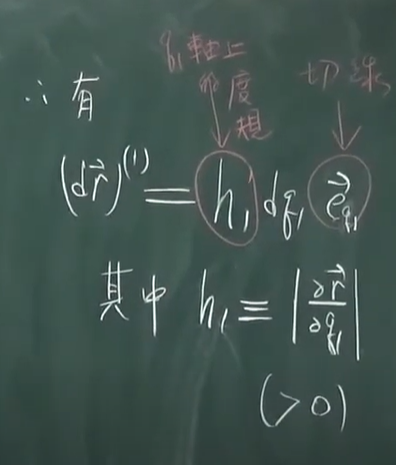 q₁軸上
的度規
切線
∴有
(d\vec{r})^{(1)} = h₁ dq₁ \vec{e}_{q₁}
其中 h₁ ≡ |∂\vec{r}/∂q₁|
(>0)